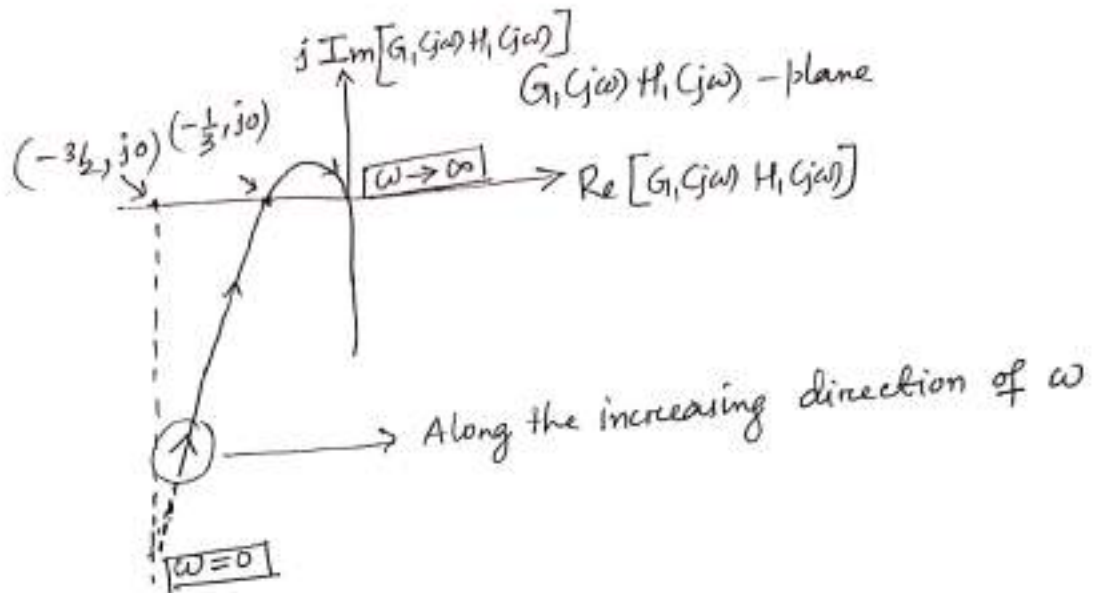 j Im[G₁(jω) H₁(jω)]
G₁(jω) H₁(jω) - plane
(-3/2, j0) (-1/3, j0)
ω → ∞
Re [G₁(jω) H₁(jω)]
Along the increasing direction of ω
ω = 0